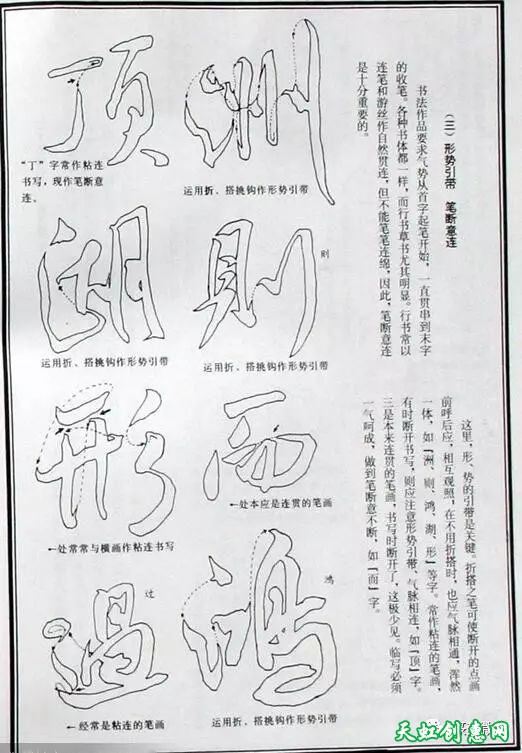 (三) 形势引带　笔断意连
书法作品要求气势从首字起笔开始，一直贯串到末字
的收笔。各种书体都一样，而行书草书尤其明显。行书常以
连笔和游丝作自然贯连，但不能笔笔连绵，因此，笔断意连
是十分重要的。
这里，形、势的引带是关键。折搭之笔可使断开的点画
前呼后应，相互观照，在不用折搭时，也应气脉相通，浑然
一体，如「洲、则、鸿、湖、形」等字。常作粘连的笔画，
有时断开书写，则应注意形势引带、气脉相连，如「顶」字。
三是本来连贯的笔画，书写时断开了，这极少见。临写必须
一气呵成，做到笔断意不断，如「而」字。
洲
运用折、搭挑钩作形势引带
顶
“丁”字常作粘连
书写，现作笔断意
连。
則
则
运用折、搭挑钩作形势引带
湖
运用折、搭挑钩作形势引带
而
←处本应是连贯的笔画
形
←处常常与横画作粘连书写
鴻
鸿
运用折、搭挑钩作形势引带
過
过
←经常是粘连的笔画
天虹创意网